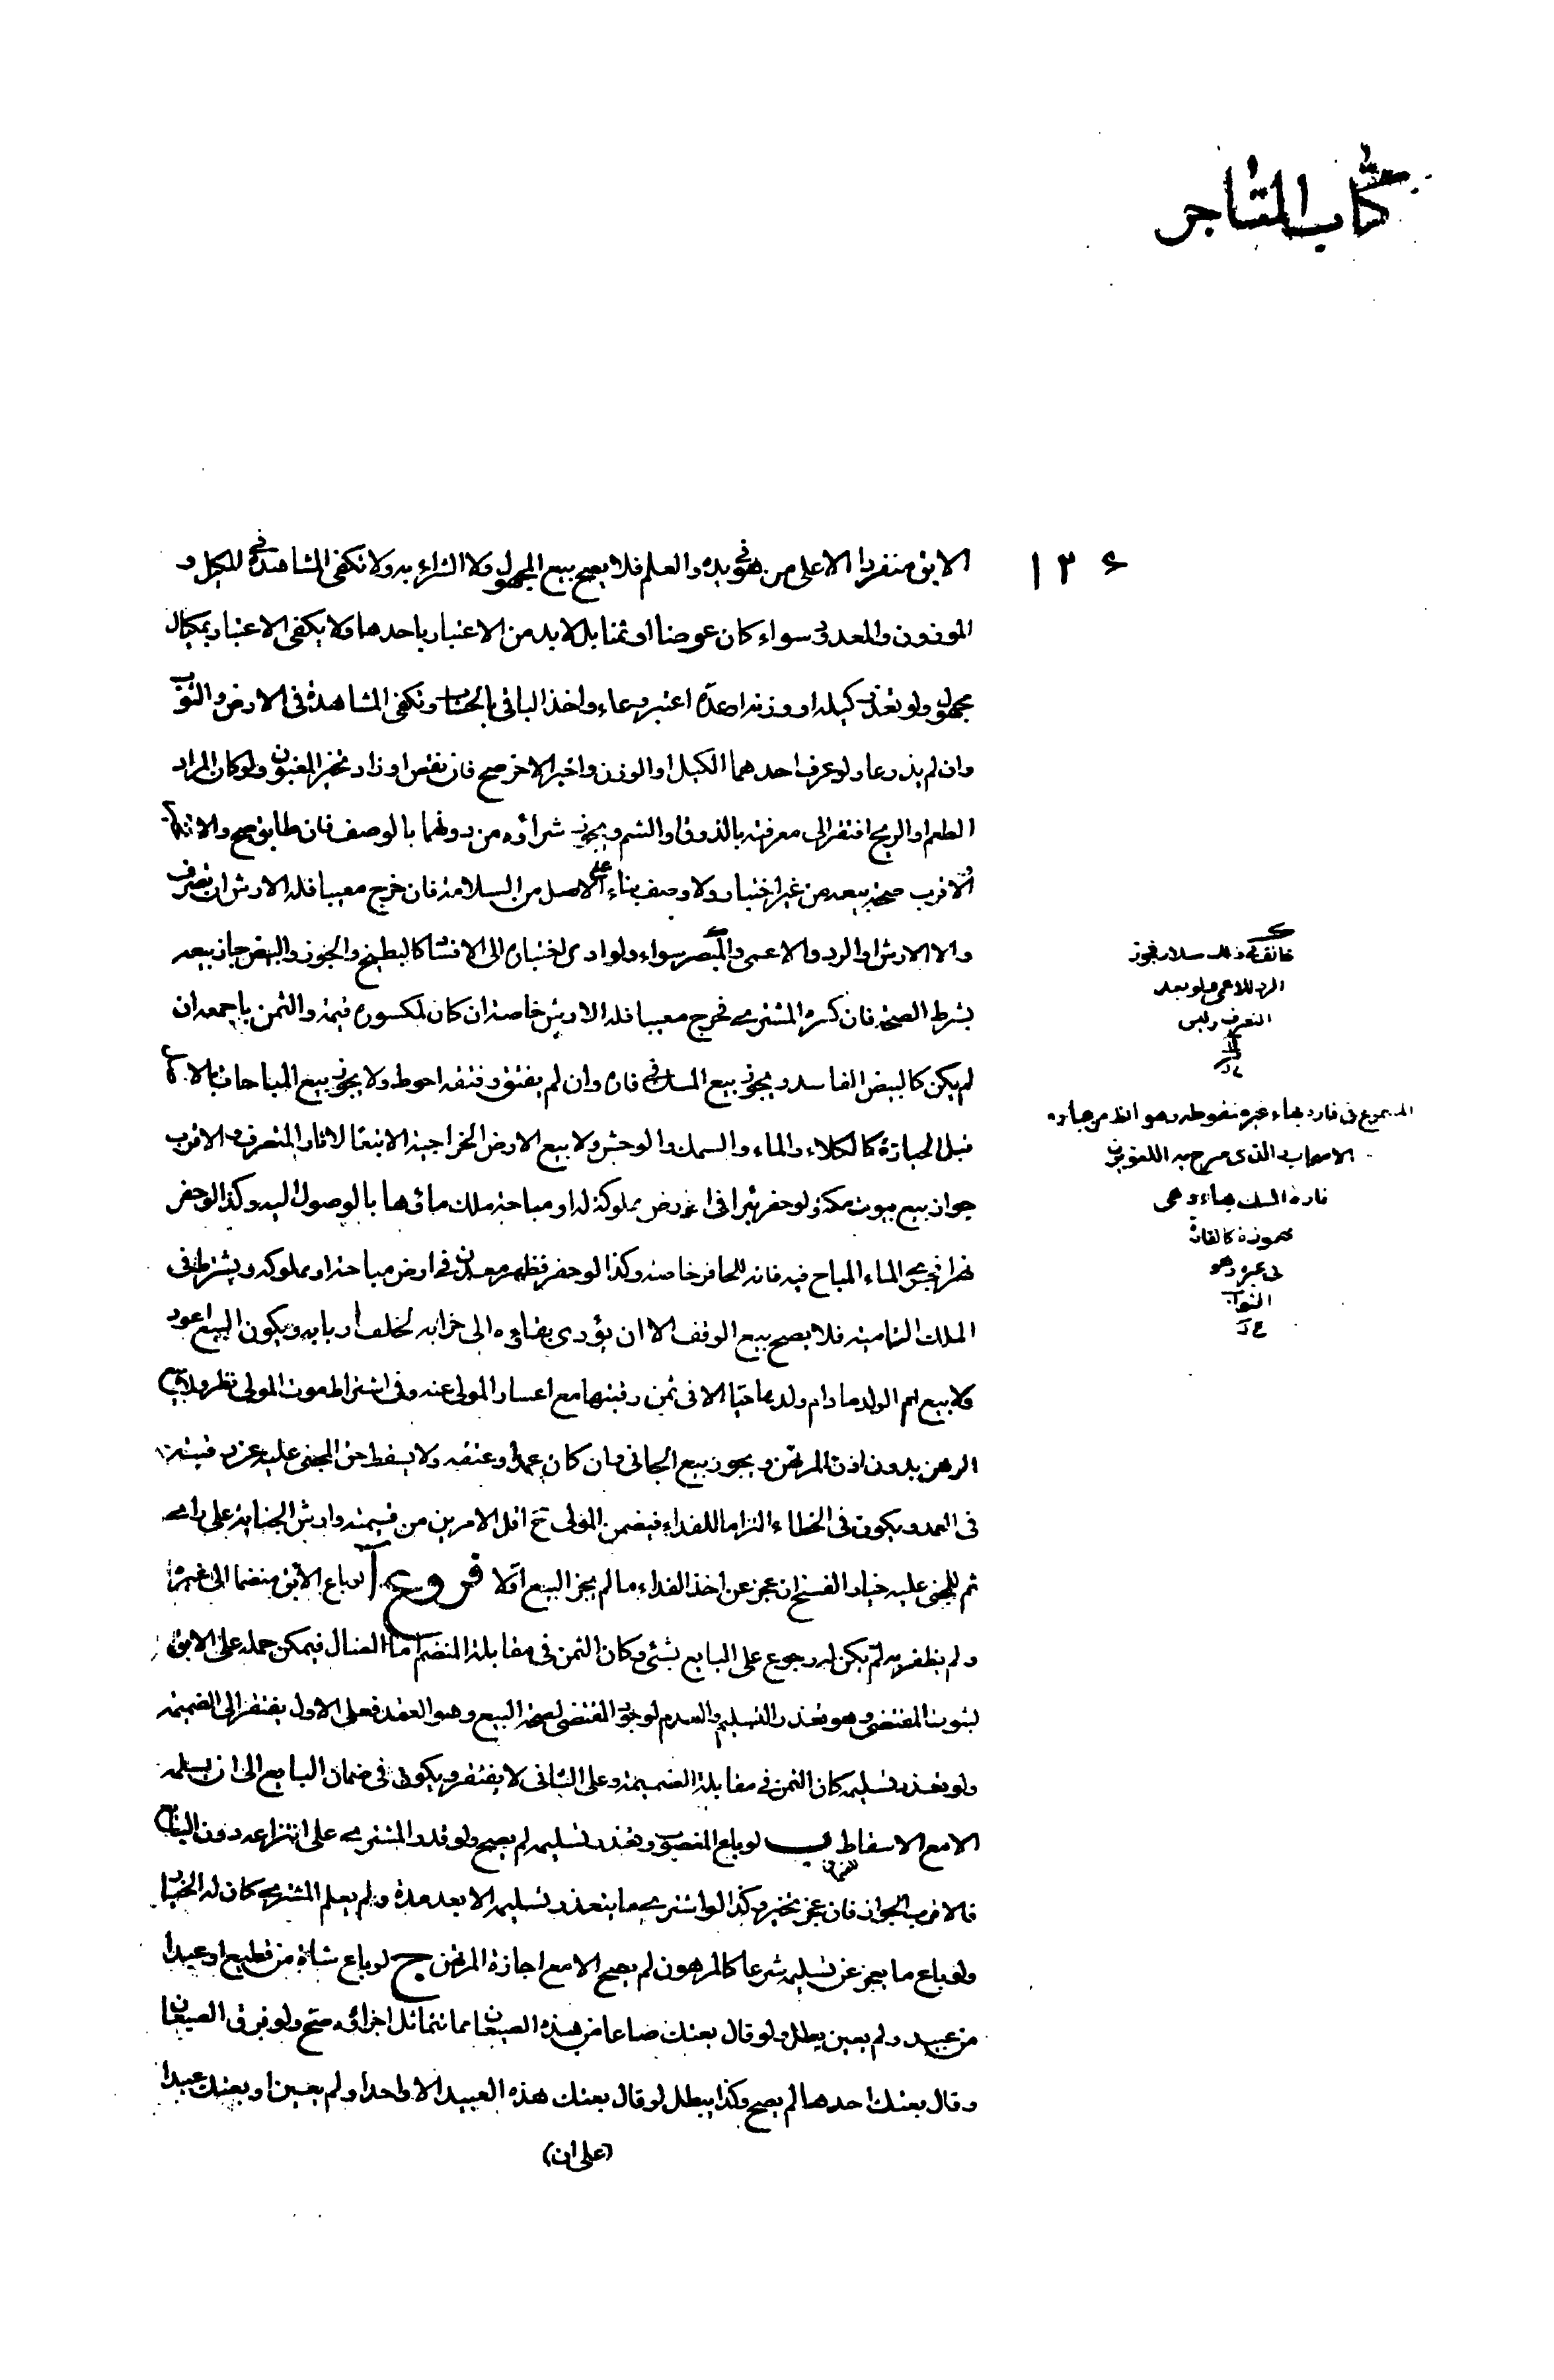 كتاب المتاجر
١٣٤
الابق منفردا الا على من هو في يده والعلم فلا يصح بيع المجهول ولا الشراء به ولا تكفي المشاهدة في المكيل و
الموزون والمعدود سواء كان عوضا او ثمنا بل لابد من الاعتبار باحدها ولا يكفي الاعتبار بمكيال
مجهول ولو تعذر كيله او وزنه او عدّه اعتبر وعاء واخذ الباقي بالحساب وتكفي المشاهدة في الارض والثوب
وان لم يذرعا ولو عرف احدهما الكيل او الوزن واخبر الاخر صح فان نقص او زاد تخير المغبون ولو كان المراد
الطعم او الريح افتقر الى معرفته بالذوق او الشم ويجوز شراؤه من دونهما بالوصف فان طابق صح والا تخير
والاقرب صحة بيعه من غير اختبار ولا وصف بناء على الاصل من السلامة فان خرج معيبا فله الارش ان تصرف
والا الارش او الرد والاعمى والمبصر سواء ولو ادى اختباره الى الافساد كالبطيخ والجوز والبيض جاز بيعه
بشرط الصحة فان كسره المشتري فخرج معيبا فله الارش خاصة ان كان لمكسوره قيمة والثمن باجمعه ان
لم يكن كالبيض الفاسد ويجوز بيع المسك في فاره وان لم يفتق وفتقه احوط ولا يجوز بيع المباحات بالاصل
قبل الحيازة كالكلاء والماء والسمك والوحش ولا بيع الارض الخراجية الا تبعا لاثار المتصرف والاقرب
جواز بيع بيوت مكة ولو حفر بئرا في ارض مملوكة له او مباحة ملك مائها بالوصول اليه وكذا لو حفر
نهرا فجرى الماء المباح فيه فانه للحافر خاصة وكذا لو حفر فظهر معدن في ارض مباحة او مملوكه ويشترط في
الملك التمامية فلا يصح بيع الوقف الا ان يؤدي بقاؤه الى خرابه لخلف اربابه ويكون البيع اعود
ولا بيع ام الولد ما دام ولدها حيا الا في ثمن رقبتها مع اعسار المولى عنه وفي اشتراط موت المولى نظر ولا بيع
الرهن بدون اذن المرتهن ويجوز بيع الجاني وان كان عمدا وعتقه ولا يسقط حق المجني عليه عن رقبته
في العمد ويكون في الخطاء التزاما للفداء فيضمن المولى ح اقل الامرين من قيمته وارش الجناية على راي
ثم للمجني عليه خيار الفسخ ان عجز عن اخذ الفداء ما لم يجز البيع اولا فروع آ لو باع الابق منضما الى غيره
ولم يظفر به لم يكن له رجوع على البايع بشئ وكان الثمن في مقابلة المنضم اما الضال فيمكن حمله على الابق
لثبوت المقتضي وهو تعذر التسليم والعدم لوجود المقتضي لصحة البيع وهو العقد فعلى الاول يفتقر الى الضميمة
ولو تعذر تسليمه كان الثمن في مقابلة الضميمة وعلى الثاني لا يفتقر ويكون في ضمان البايع الى ان يسلمه
الا مع الاسقاط ب لو باع المغصوب وتعذر تسليمه لم يصح ولو قدر المشتري على انتزاعه دون البايع
فالاقرب الجواز فان عجز تخير وكذا لو اشترى ما يتعذر تسليمه الا بعد مدة ولم يعلم المشتري كان له الخيار
ولو باع ما يعجز عن تسليمه شرعا كالمرهون لم يصح الا مع اجازة المرتهن ج لو باع شاة من قطيع او عبدا
من عبيد ولم يعين بطل ولو قال بعتك صاعا من هذه الصيعان مما تتماثل اجزاؤه صح ولو فرق الصيعان
وقال بعتك احدها لم يصح وكذا يبطل لو قال بعتك هذه العبيد الا واحدا ولم يعين او بعتك عبدا
(على ان)
خالف في ذلك سلار فجوز
الرد للاعمى ولو بعد
التصرف وليس
في فاره بهاء غير منقوطه وهو الظ من عبارة
الاصحاب الذي صرح به اللغويون
فارة المسك بهاء وهي
مهموزة كالفارة
في غيره وهو
الثواب